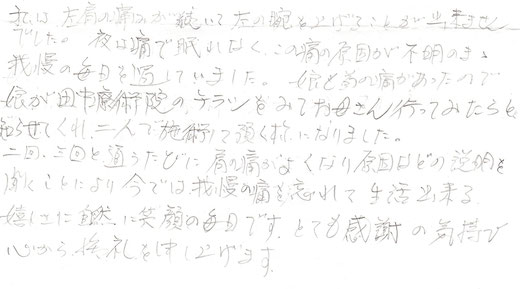 私は左肩の痛みが続いて左の腕を上げることが出来ません
でした。夜は痛で眠れなく、この痛の原因が不明のまゝ
我慢の毎日を過していました。娘も首の痛があったので
娘が田中療術院のチラシをみてお母さん行ってみたらと
知らせてくれ、二人で施術して頂く様になりました。
二回、三回と通うたびに肩の痛がよくなり原因などの説明を
聞くことにより今では、我慢の痛を忘れて生活出来る
嬉しさに自然に笑顔の毎日です。とても感謝の気持で
心から御礼を申し上げます。